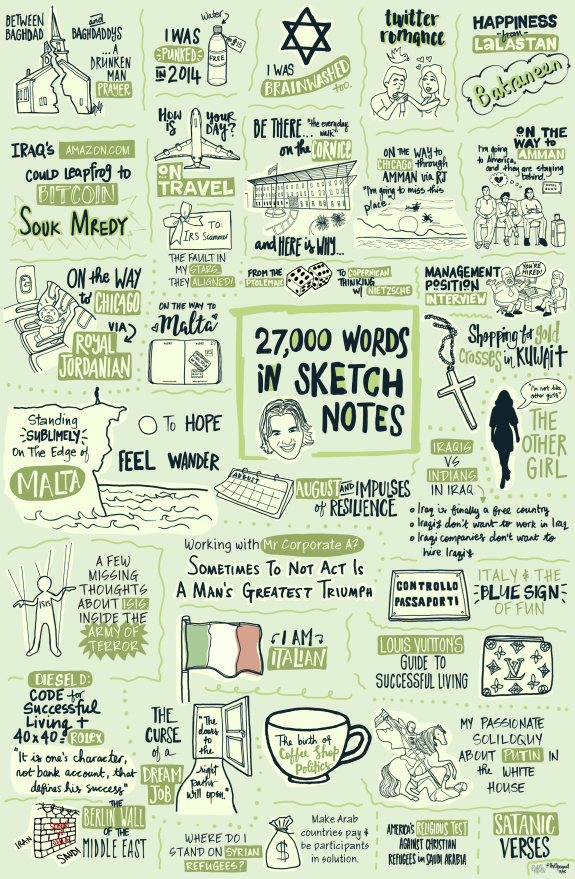 BETWEEN BAGHDAD
and BAGHDADDYS
...A
DRUNKEN
MAN
PRAYER
I WAS
"PUNKED"
IN 2014
Water
FREE
$15
I WAS
BRAINWASHED
too.
twitter
romance
HAPPINESS
from
LALASTAN
Batraneen
IRAQ'S AMAZON.COM
COULD LEAPFROG TO
BITCOIN
SOUK MREDY
HOW IS YOUR DAY?
ON
TRAVEL
TO:
IRS Scammer
THE FAULT IN
MY STARS...
THEY ALIGNED!
BE THERE... "the everyday walk"
on the CORNICE
and HERE is WHY...
ON THE WAY TO
CHICAGO through
AMMAN via RJ
"I'm going to miss this
place."
...ON THE
WAY TO
AMMAN
I'm going
to America,
and they are staying
behind.
ON the WAY
to CHICAGO
VIA
ROYAL
JORDANIAN
ON THE WAY TO
Malta
FROM THE
PTOLEMAIC
TO COPERNICAN
THINKING
w/ NIETZSCHE
MANAGEMENT
POSITION
INTERVIEW
YOU'RE
HIRED!
27,000 WORDS
iN SKETCH
NOTES
Shopping for gold
Crosses in KUWAIT
Standing
SUBLIMELY
On The Edge of
MALTA
To HOPE
FEEL WANDER
AUGUST
AUGUST AND IMPULSES
of RESILIENCE
IRAQIS
VS
INDIANS
IN IRAQ
"I'm not like
other girls"
THE
OTHER
GIRL
Iraq is finally a free country
Iraqis don't want to work in Iraq
Iraqi companies don't want to
hire Iraqis
ISIS
A FEW
MISSING
THOUGHTS
ABOUT ISIS
INSIDE THE
ARMY OF
TERROR
Working with Mr Corporate A?
SOMETIMES TO NOT ACT IS
A MAN'S GREATEST TRIUMPH
CONTROLLO
PASSAPORTI
ITALY & THE
BLUE SIGN
OF FUN
I AM
ITALIAN
LOUIS VUITTON'S
GUIDE TO
SUCCESSFUL LIVING
LV
DIESEL D:
CODE for
Successful
Living +
40 x 40 = ROLEX
"It is one's character,
not bank account, that
defines his success"
THE
CURSE
of a
DREAM
JOB
"The
doors
to the
right
paths
will open."
The birth of
Coffee Shop
Politics
MY PASSIONATE
SOLILOQUY
ABOUT PUTIN IN
the WHITE
HOUSE
IRAN
SAUDI
THE
BERLIN WALL
OF THE
MIDDLE EAST
WHERE DO I
STAND ON SYRIAN
REFUGEES?
$
Make Arab
countries pay &
be participants
in solution.
AMERICA'S RELIGIOUS TEST
AGAINST CHRISTIAN
REFUGEES in SAUDI ARABIA
SATANIC
VERSES